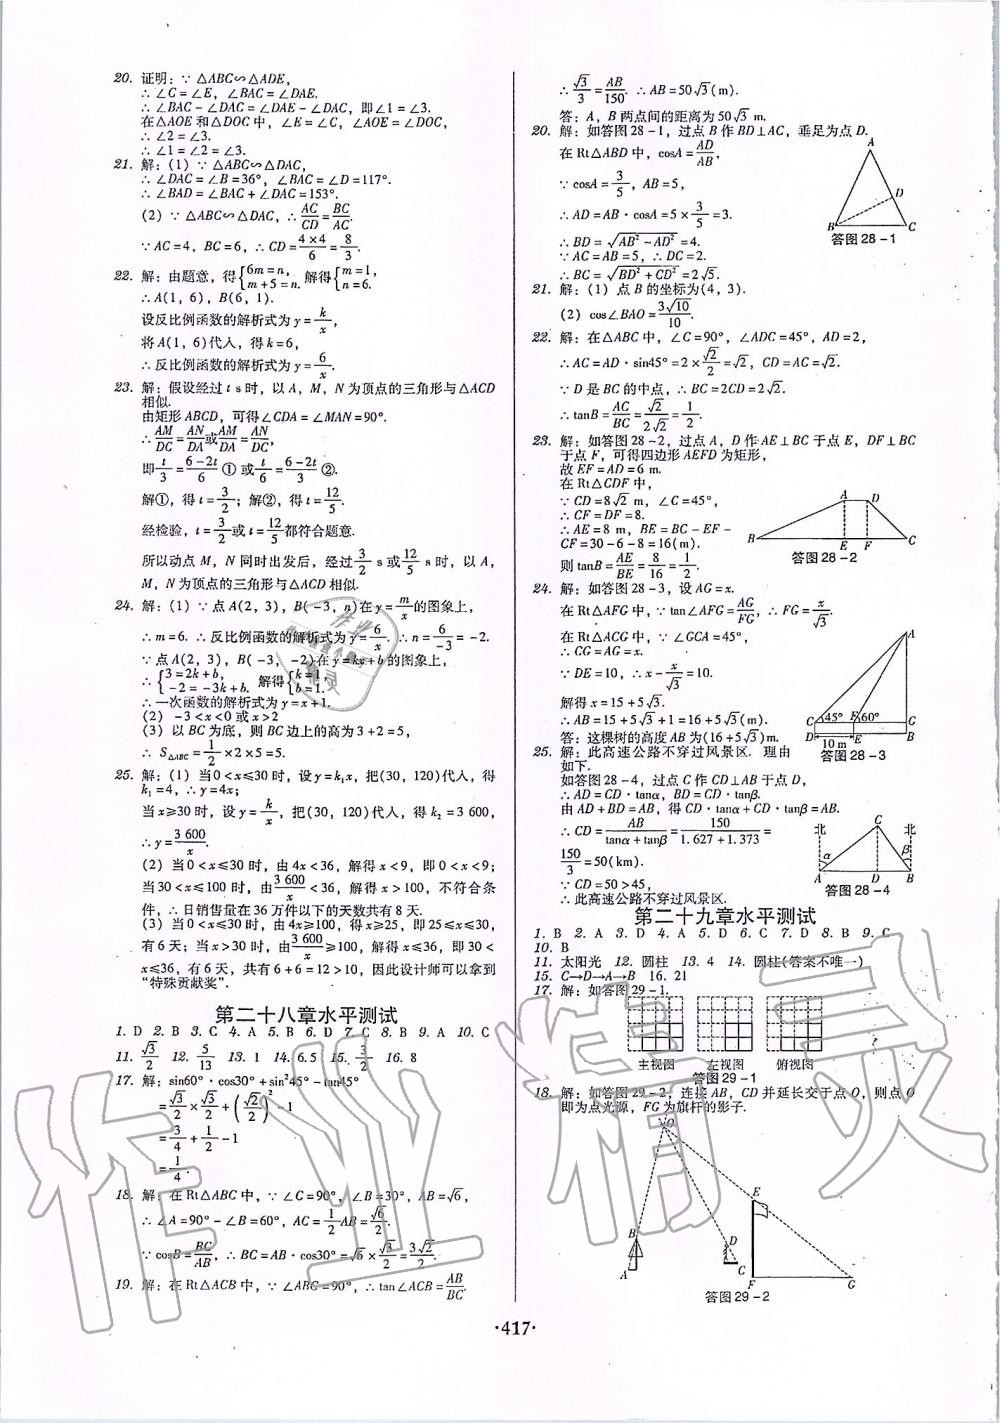 20. 证明：∵ △ABC∽△ADE，
∴ ∠C=∠E，∠BAC=∠DAE.
∴ ∠BAC-∠DAC=∠DAE-∠DAC，即∠1=∠3.
在△AOE和△DOC中，∠E=∠C，∠AOE=∠DOC，
∴ ∠2=∠3.
∴ ∠1=∠2=∠3.
21. 解：(1) ∵ △ABC∽△DAC，
∴ ∠DAC=∠B=36°，∠BAC=∠D=117°.
∴ ∠BAD=∠BAC+∠DAC=153°.
(2) ∵ △ABC∽△DAC，∴ AC/CD=BC/AC.
∵ AC=4，BC=6，∴ CD=4×4/6=8/3.
22. 解：由题意，得{6m=n，m+5=n. 解得{m=1，n=6.
∴A(1，6)，B(6，1).
设反比例函数的解析式为y=k/x，
将A(1，6)代入，得k=6，
∴反比例函数的解析式为y=6/x.
23. 解：假设经过t s时，以A，M，N为顶点的三角形与△ACD
相似.
由矩形ABCD，可得∠CDA=∠MAN=90°.
∴ AM/DC=AN/DA或AM/DA=AN/DC，
即t/3=6-2t/6 ①或t/6=6-2t/3 ②.
解①，得t=3/2；解②，得t=12/5.
经检验，t=3/2或t=12/5都符合题意.
所以动点M，N同时出发后，经过3/2 s或12/5 s时，以A，
M，N为顶点的三角形与△ACD相似.
24. 解：(1) ∵ 点A(2，3)，B(-3，n)在y=m/x的图象上，
∴ m=6. ∴ 反比例函数的解析式为y=6/x. ∴ n=6/-3=-2.
∵ 点A(2，3)，B(-3，-2)在y=kx+b的图象上，
∴ {3=2k+b，-2=-3k+b. 解得{k=1，b=1.
∴一次函数的解析式为y=x+1.
(2) -3<x<0或x>2
(3) 以BC为底，则BC边上的高为3+2=5，
∴ S△ABC=1/2×2×5=5.
25. 解：(1) 当0<x≤30时，设y=k₁x，把(30，120)代入，得
k₁=4，∴ y=4x；
当x≥30时，设y=k/x，把(30，120)代入，得k₂=3 600，
∴y=3 600/x.
(2) 当0<x≤30时，由4x<36，解得x<9，即0<x<9；
当30<x≤60时，由3 600/x<36，解得x>100，不符合条
件，∴ 日销售量在36万件以下的天数共有8天.
(3) 当0<x≤30时，由4x≥100，得x≥25，即25≤x≤30，
有6天；当30<x≤60时，由3 600/x≥100，解得x≤36，即30<
x≤36，有6天，共有6+6=12>10，因此设计师可以拿到
“特殊贡献奖”.
第二十八章水平测试
1. D 2. B 3. C 4. A 5. B 6. D 7. C 8. B 9. A 10. C
11. √3/2 12. 5/13 13. 1 14. 6.5 15. 3/2 16. 8
17. 解：sin60°·cos30°+sin²45°-tan45°
=√3/2×√3/2+(√2/2)²-1
=3/4+1/2-1
=1/4.
18. 解：在Rt△ABC中，∵ ∠C=90°，∠B=30°，AB=√6，
∴ ∠A=90°-∠B=60°，AC=1/2AB=√6/2.
∵ cosB=BC/AB，∴ BC=AB·cos30°=√6×√3/2=3√2/2.
19. 解：在Rt△ACB中，∵ ∠ABC=90°，∴ tan∠ACB=AB/BC.
√3/3=AB/150. ∴ AB=50√3(m).
答：A，B两点间的距离为50√3 m.
20. 解：如答图28-1，过点B作BD⊥AC，垂足为点D.
在Rt△ABD中，cosA=AD/AB，
∵ cosA=3/5，AB=5，
∴ AD=AB·cosA=5×3/5=3.
∴ BD=√AB²-AD²=4.
∵ AC=AB=5，∴ DC=2.
∴ BC=√BD²+CD²=2√5.
A
D
B
C
答图28-1
21. 解：(1) 点B的坐标为(4，3).
(2) cos∠BAO=3√10/10.
22. 解：在△ABC中，∠C=90°，∠ADC=45°，AD=2，
∴ AC=AD·sin45°=2×√2/2=√2，CD=AC=√2.
∵ D是BC的中点，∴ BC=2CD=2√2.
∴ tanB=AC/BC=√2/2√2=1/2.
23. 解：如答图28-2，过点A，D作AE⊥BC于点E，DF⊥BC
于点F，可得四边形AEFD为矩形，
故EF=AD=6 m.
在Rt△CDF中，
∵ CD=8√2 m，∠C=45°，
∴ CF=DF=8.
∴ AE=8 m，BE=BC-EF-
CF=30-6-8=16(m).
则tanB=AE/BE=8/16=1/2.
A D
B E F C
答图28-2
24. 解：如答图28-3，设AG=x.
在Rt△AFG中，∵ tan∠AFG=AG/FG，∴ FG=x/√3.
在Rt△ACG中，∵ ∠GCA=45°，
∴ CG=AG=x.
∵ DE=10，∴ x-x/√3=10.
解得x=15+5√3.
∴ AB=15+5√3+1=16+5√3(m).
答：这棵树的高度AB为(16+5√3)m.
A
C 45° F 60° G
D E B
10 m
答图28-3
25. 解：此高速公路不穿过风景区. 理由
如下.
如答图28-4，过点C作CD⊥AB于点D，
∴ AD=CD·tanα，BD=CD·tanβ.
由AD+BD=AB，得CD·tanα+CD·tanβ=AB.
∴ CD=AB/tanα+tanβ=150/1.627+1.373=
150/3=50(km).
∵ CD=50>45，
∴ 此高速公路不穿过风景区.
北 C 北
α β
A D B
答图28-4
第二十九章水平测试
1. B 2. A 3. D 4. A 5. D 6. C 7. D 8. B 9. C
10. B
11. 太阳光 12. 圆柱 13. 4 14. 圆柱(答案不唯一)
15. C→D→A→B 16. 21
17. 解：如答图29-1.
主视图 左视图 俯视图
答图29-1
18. 解：如答图29-2，连接AB，CD并延长交于点O，则点O
即为点光源，FG为旗杆的影子.
O
E
B D
A C F G
答图29-2
·417·
作业精灵